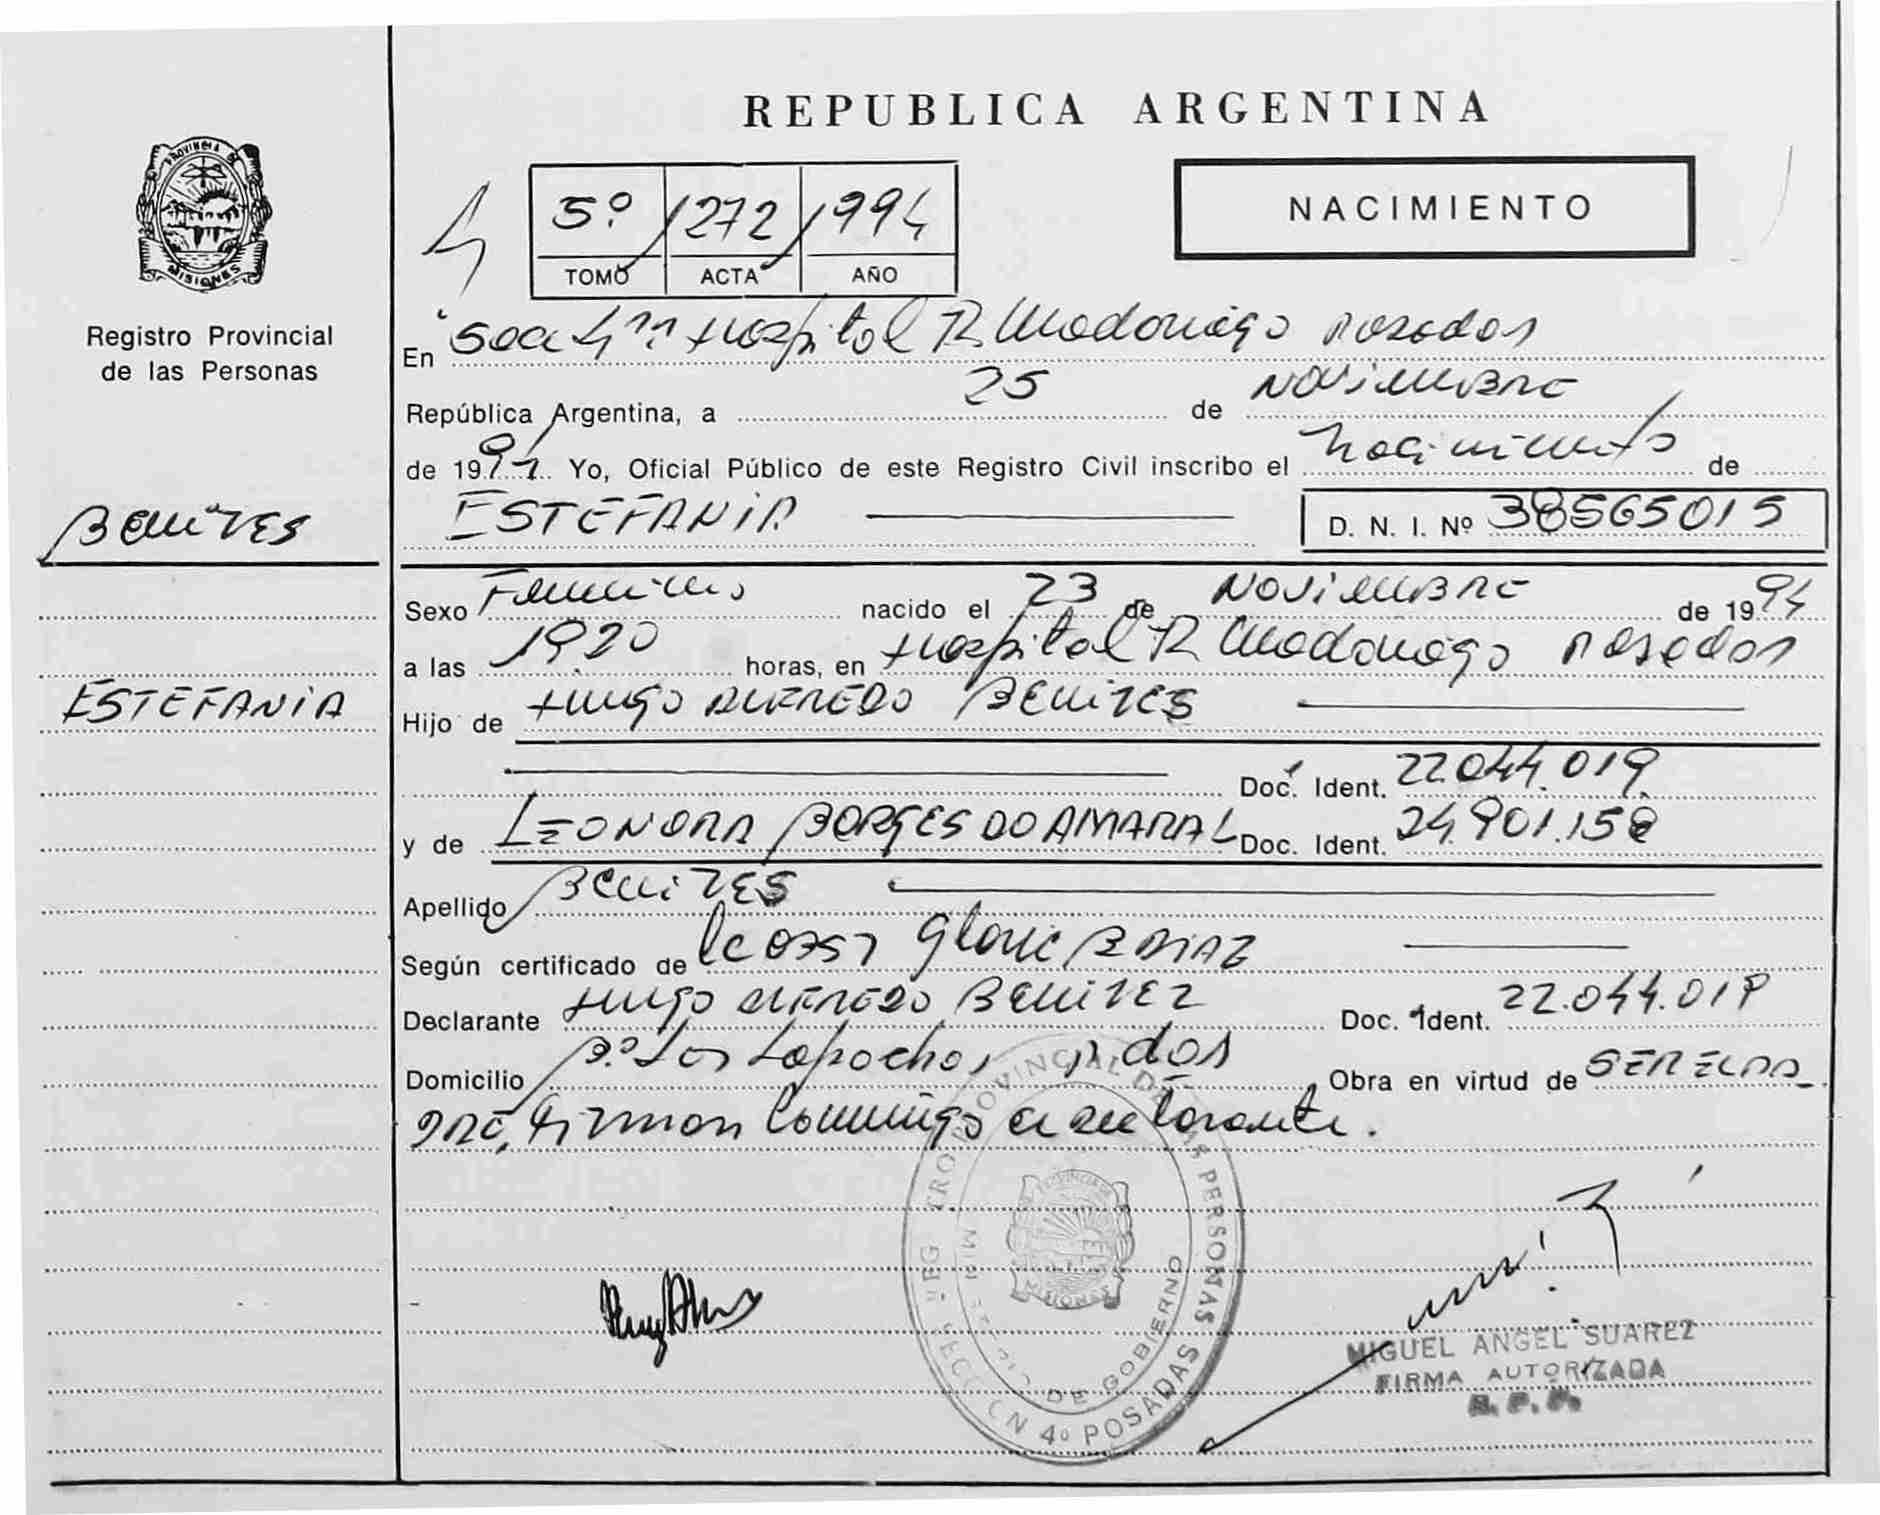 REPUBLICA ARGENTINA
PROVINCIA DE
MISIONES
Registro Provincial
de las Personas
5º 1272 1994
TOMO ACTA AÑO
NACIMIENTO
En Secc 4ª Hospital R Madariaga Posadas
República Argentina, a 25 de NOVIEMBRE
de 1994 Yo, Oficial Público de este Registro Civil inscribo el Nacimiento de
BENITES
ESTEFANIA
D. N. I. Nº 38565015
Sexo Femenino nacido el 23 de NOVIEMBRE de 1994
a las 1920 horas, en Hospital R Madariaga Posadas
ESTEFANIA
Hijo de HUGO ALFREDO BENITES
Doc. Ident. 22.044.019
y de LEONORA BORGES DO AMARAL Doc. Ident. 24.901.158
Apellido BENITES
Según certificado de DIAZ
Declarante HUGO ALFREDO BENITEZ Doc. Ident. 22.044.019
Domicilio Bº Los Lapachos Pdas Obra en virtud de SER EL PA
DRE, Firman conmigo el declarante.
REGISTRO PROVINCIAL DE LAS PERSONAS
MINISTERIO DE GOBIERNO
SECCION 4º POSADAS
PROVINCIA DE
MISIONES
MIGUEL ANGEL SUAREZ
FIRMA AUTORIZADA
R. P. P.